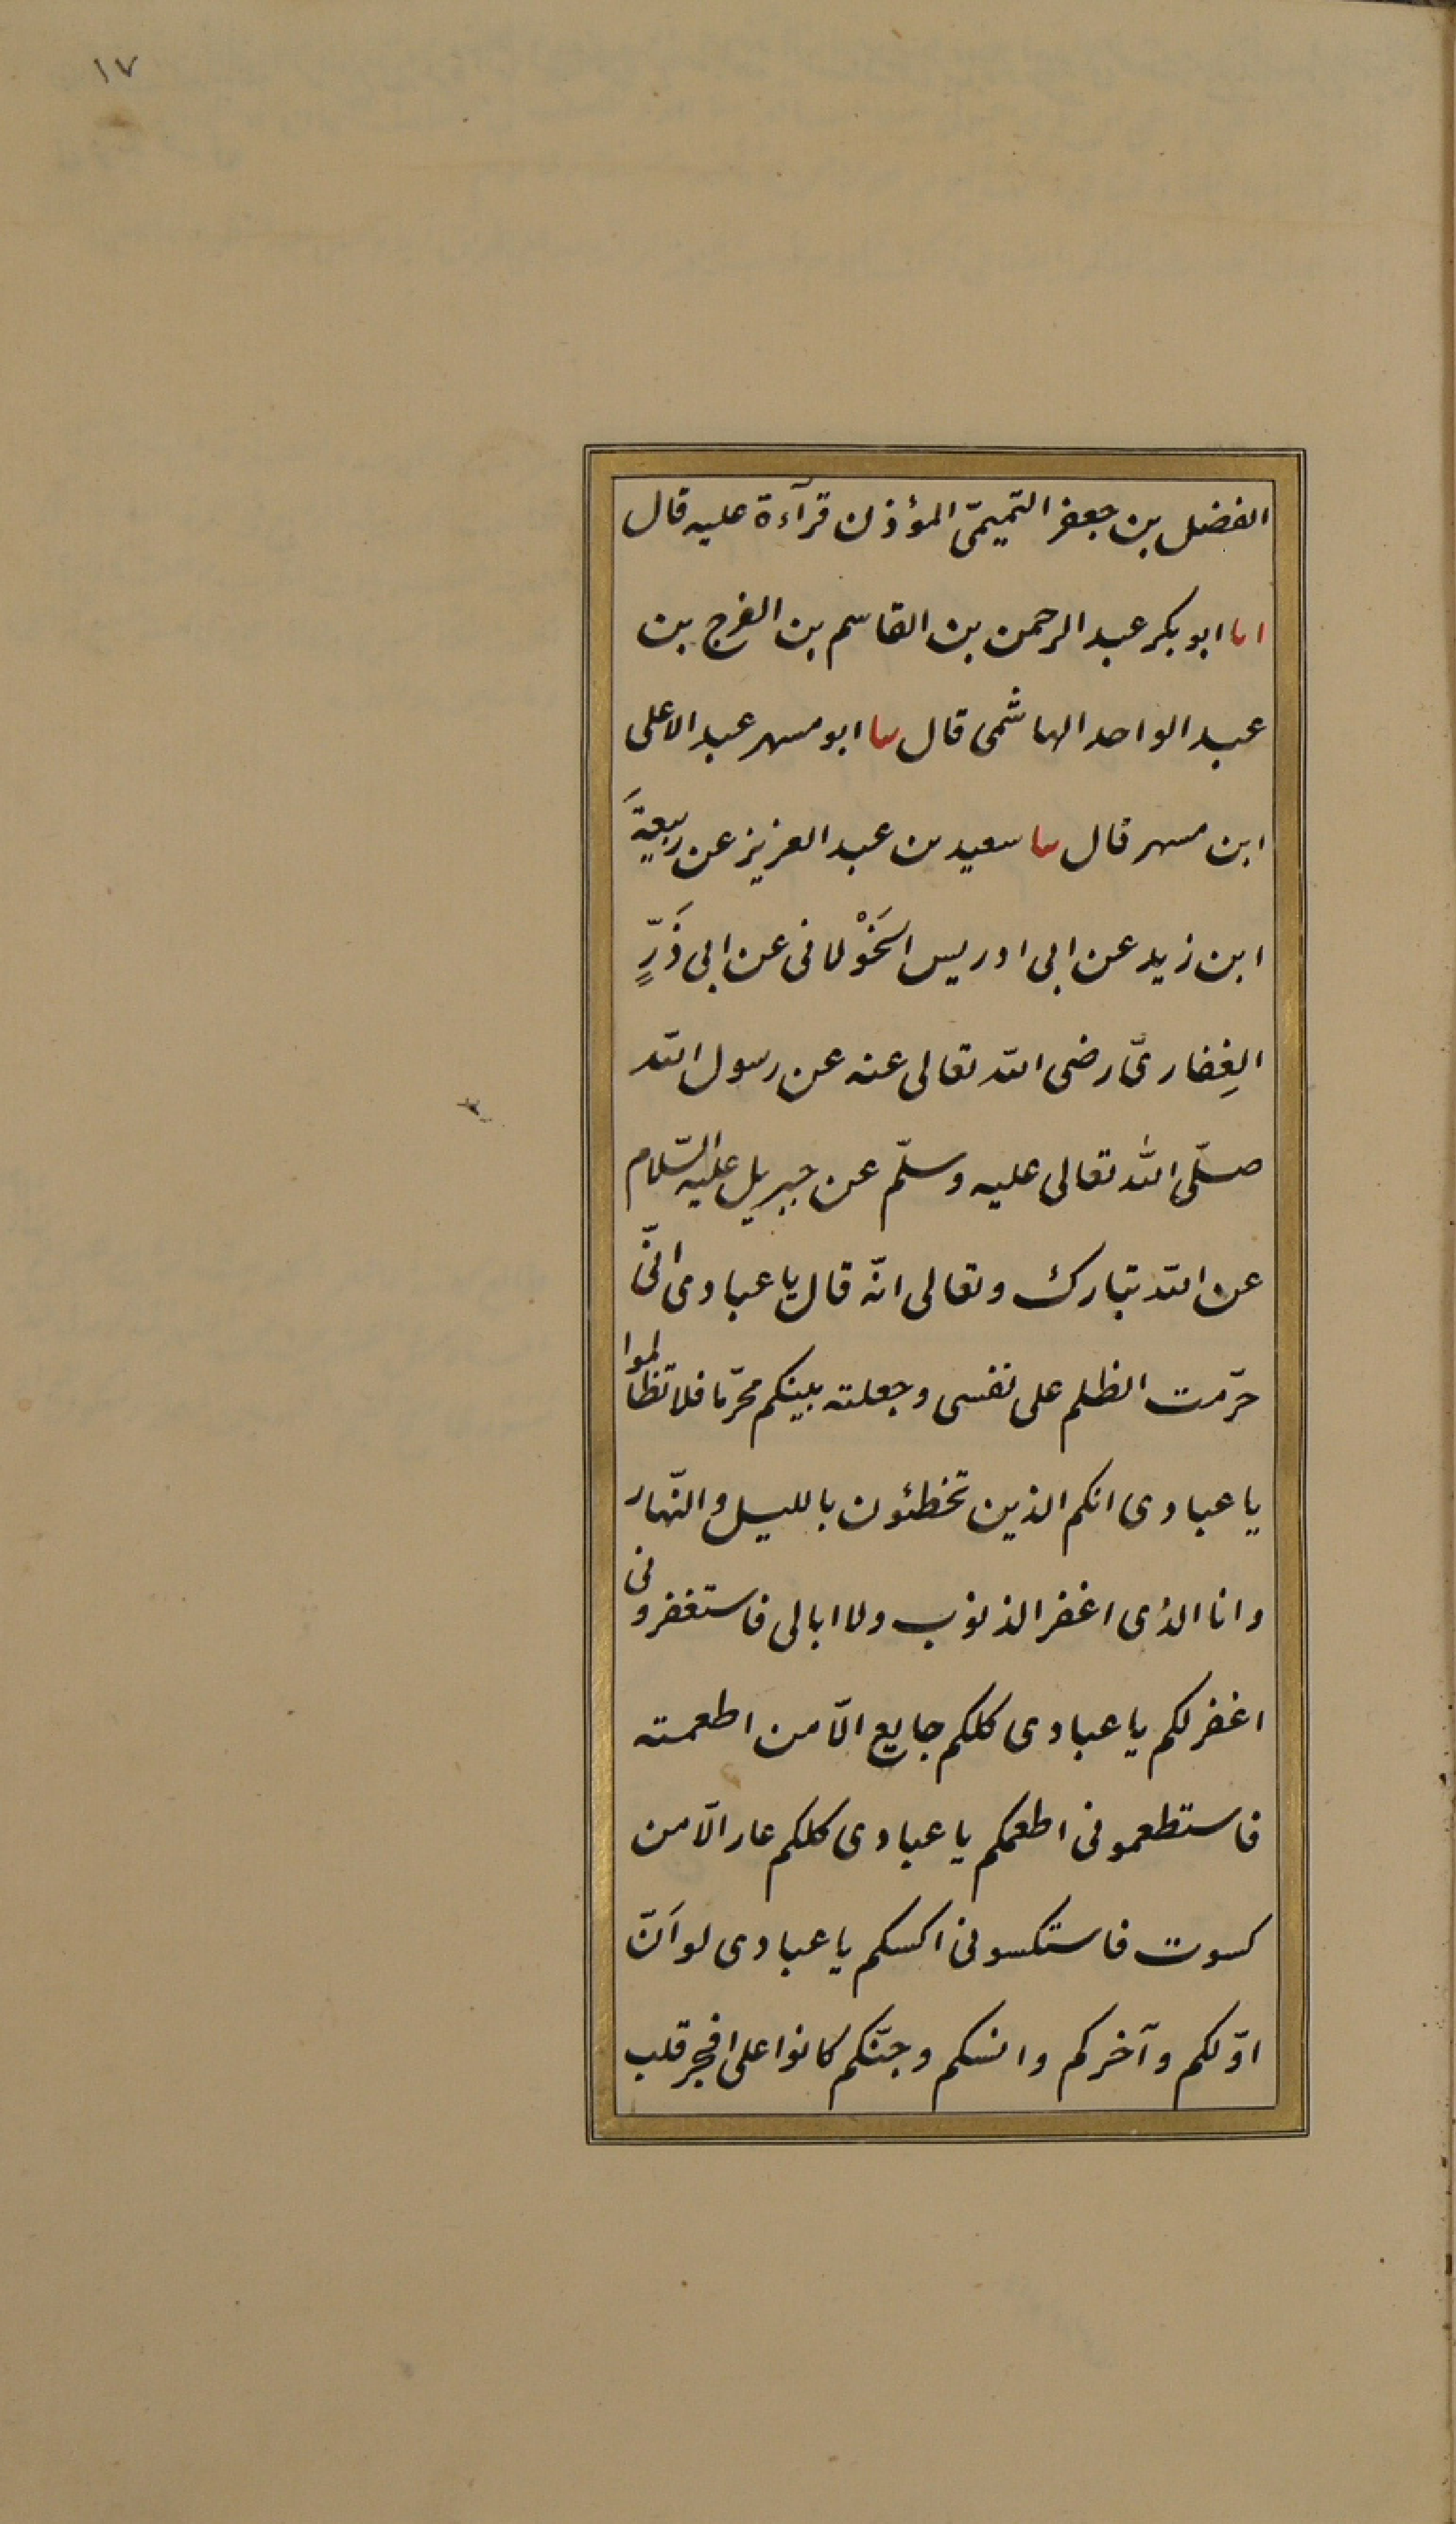 ١٧
الفضل بن جعفر التّميمىّ المؤذن قرآءة عليه قال
اىا ابو بكر عبد الرحمن بن القاسم بن الفرج بن
عبد الواحد الهاشمى قال ىىا ابو مسهر عبد الاعلى
ابن مسهر قال ىىا سعيد بن عبد العزيز عن ربيعةَ
ابن زيد عن ابى ادريس الخَوْلانى عن ابى ذَرٍّ
الغِفارىّ رضى الله تعالى عنه عن رسول الله
صلّى الله تعالى عليه وسلّم عن جبريل عليه السّلام
عن الله تبارك وتعالى انّه قال يا عبادى انّى
حرّمت الظلم على نفسى وجعلته بينكم محرّما فلا تظالموا
يا عبادى انكم الذين تخطئون بالليل والنّهار
وانا الذى اغفر الذنوب ولا ابالى فاستغفرونى
اغفر لكم يا عبادى كلكم جايع الّا من اطعمته
فاستطعمونى اطعمكم يا عبادى كلكم عار الّا من
كسوت فاستكسونى اكسكم يا عبادى لو اَنّ
اوّلكم وآخركم وانسكم وجنّكم كانوا على افجر قلب